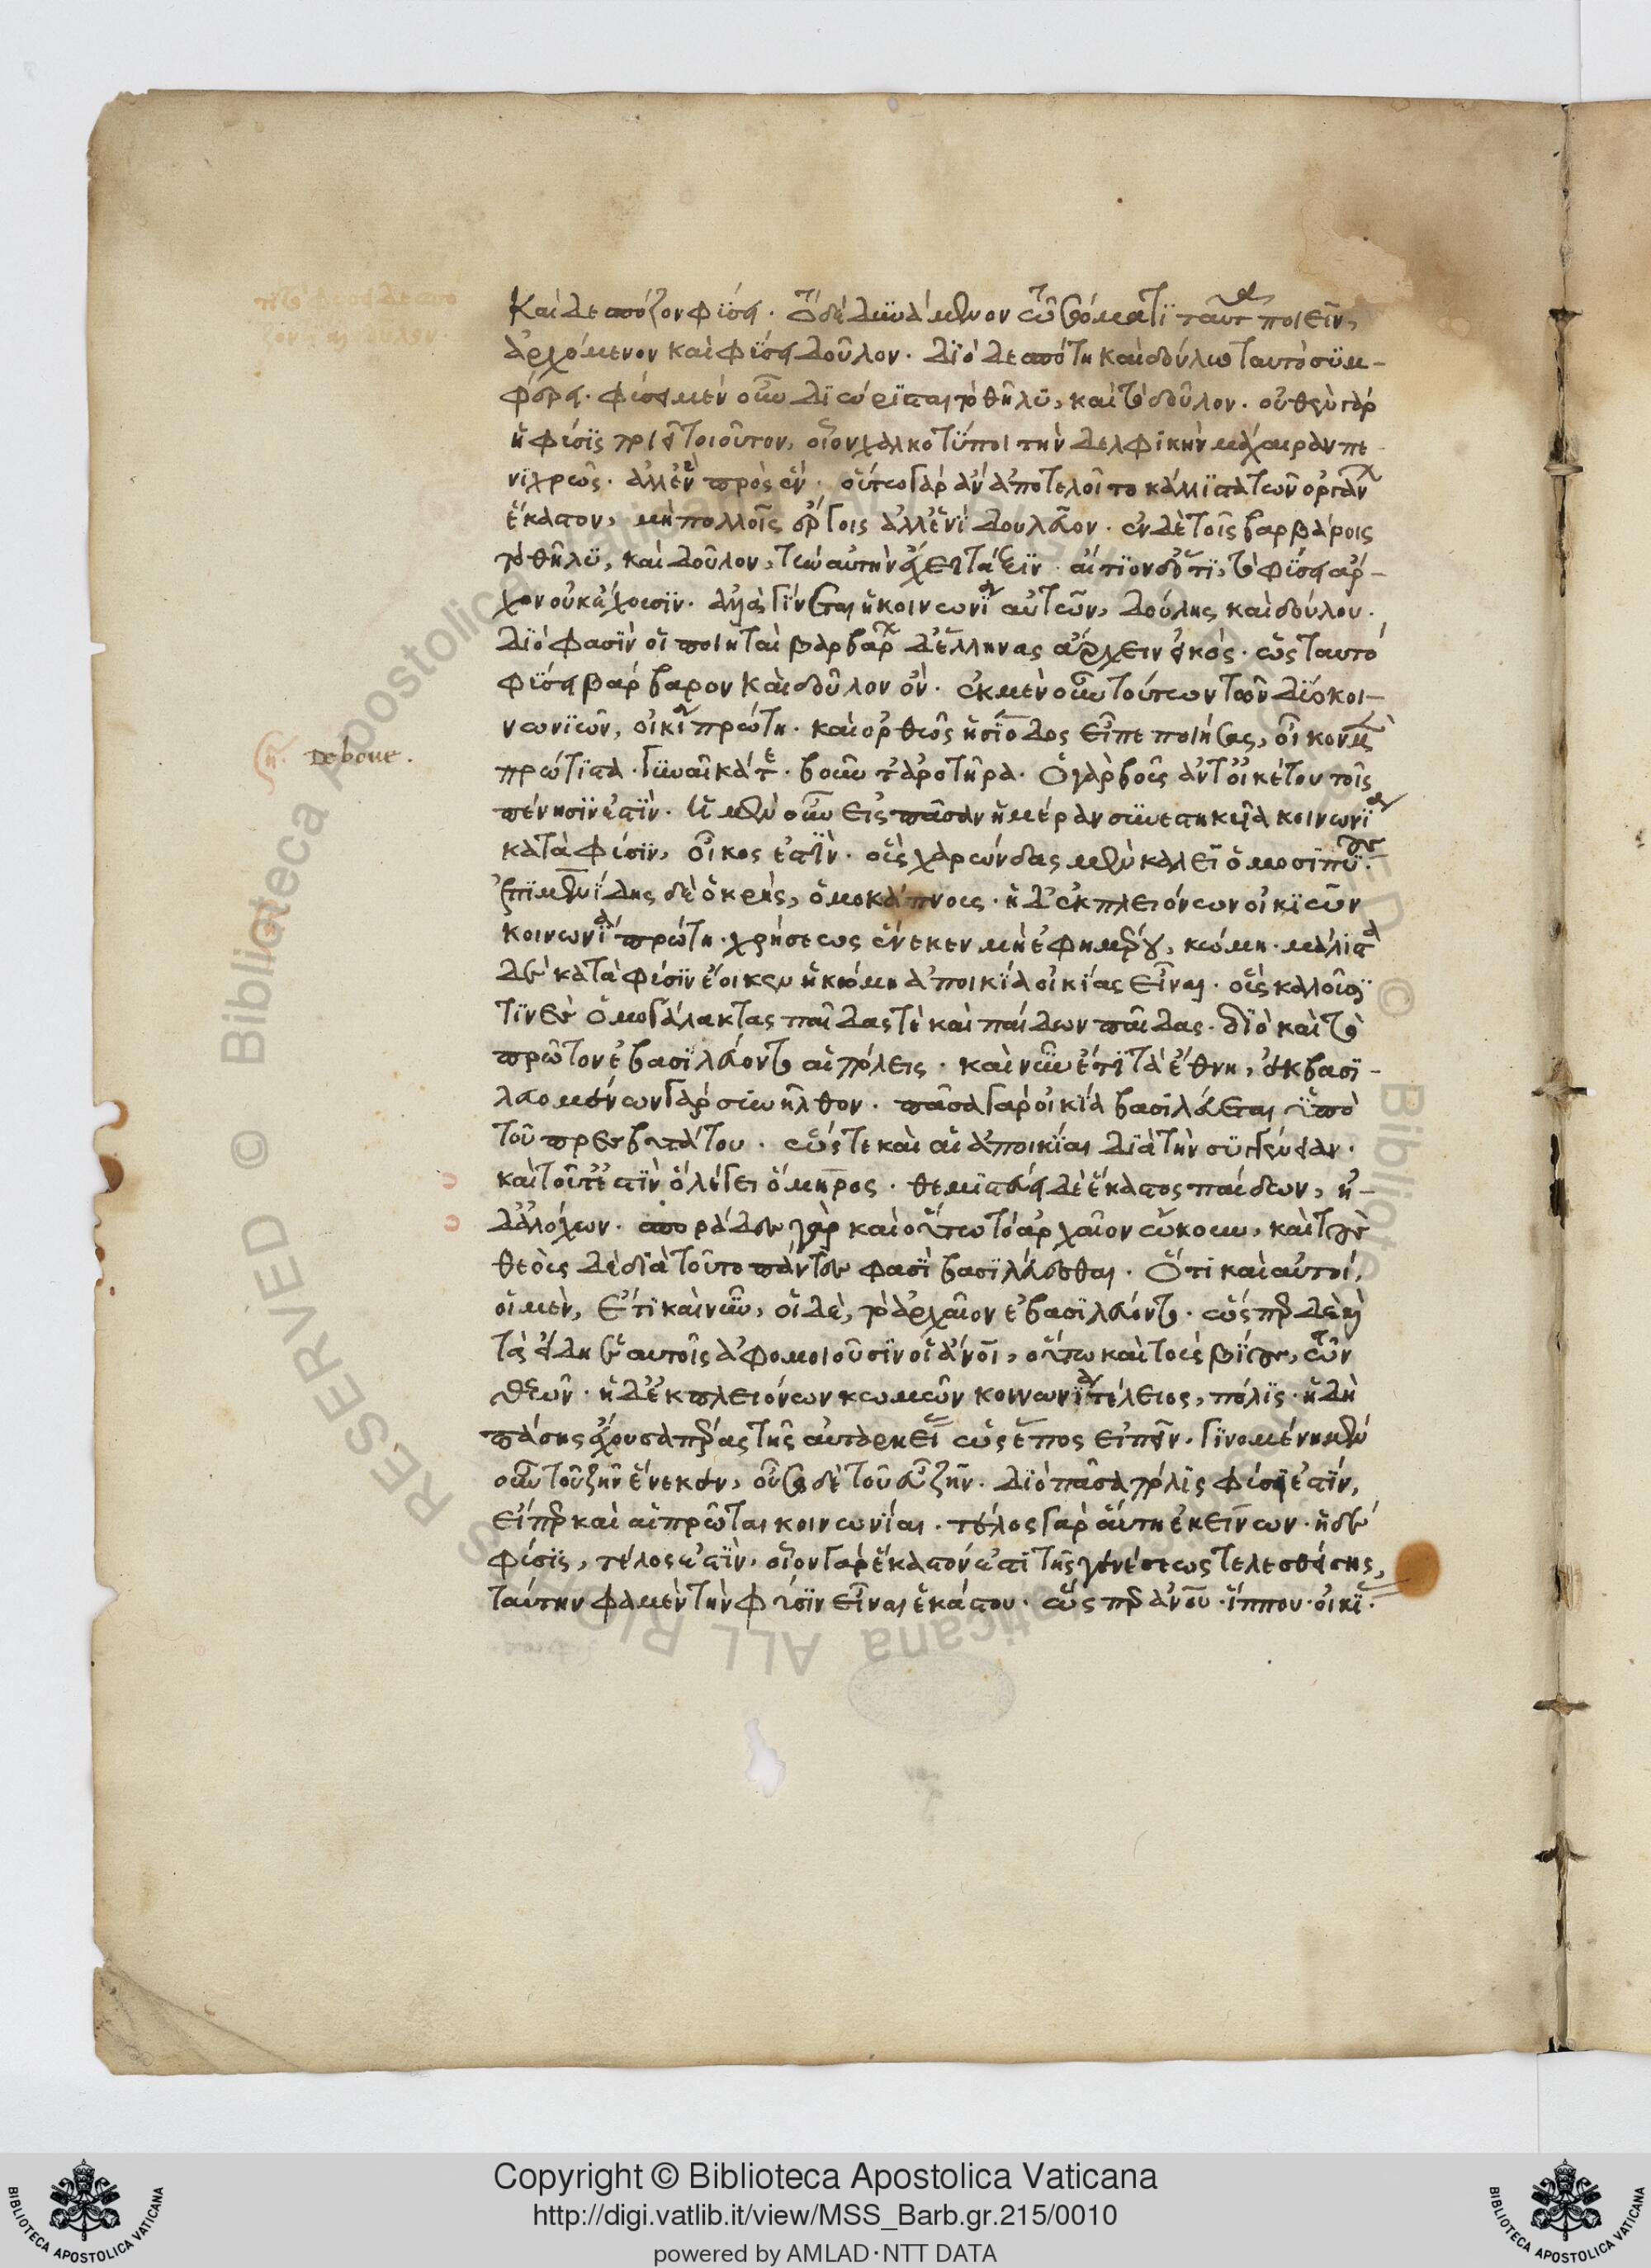 καὶ δεσπόζον φύσει. τὸ δὲ δυνάμενον τῷ σώματι ταῦτα ποιεῖν,
ἀρχόμενον καὶ φύσει δοῦλον. διὸ δεσπότη καὶ δούλω ταυτὸ συμ-
φέρει. φύσει μὲν οὖν διώρισται τὸ θῆλυ, καὶ τὸ δοῦλον. οὐθὲν γὰρ
ἡ φύσις ποιεῖ τοιοῦτον, οἷον χαλκοτύποι τὴν δελφικὴν μάχαιραν πε-
νιχρῶς. ἀλλ' ἓν πρὸς ἕν. οὕτω γὰρ ἂν ἀποτελοῖτο κάλλιστα τῶν ὀργάνων
ἕκαστον, μὴ πολλοῖς ἔργοις ἀλλ' ἑνὶ δουλεῦον. ἐν δὲ τοῖς βαρβάροις
τὸ θῆλυ, καὶ δοῦλον, τὴν αὐτὴν ἔχει τάξιν. αἴτιον δ' ὅτι, τὸ φύσει ἄρ-
χον οὐκ ἔχουσιν. ἀλλὰ γίνεται ἡ κοινωνία αὐτῶν, δούλης καὶ δούλου.
διό φασιν οἱ ποιηταὶ βαρβάρων δ' ἕλληνας ἄρχειν εἰκός. ὡς ταυτὸ
φύσει βάρβαρον καὶ δοῦλον ὄν. ἐκ μὲν οὖν τούτων τῶν δύο κοι-
νωνιῶν, οἰκία πρώτη. καὶ ὀρθῶς ἡσίοδος εἶπε ποιήσας, οἶκον μὲν
πρώτιστα. γυναῖκά τε. βοῦν τ' ἀροτῆρα. ὁ γὰρ βοῦς ἀντ' οἰκέτου τοῖς
πένησίν ἐστιν. ἡ μὲν οὖν εἰς πᾶσαν ἡμέραν συνεστηκυῖα κοινωνία
κατὰ φύσιν, οἶκός ἐστιν. οὓς χαρώνδας μὲν καλεῖ ὁμοσιπύους.
ἐπιμενίδης δὲ ὁ κρής, ὁμοκάπνους. ἡ δ' ἐκ πλειόνων οἰκιῶν
κοινωνία πρώτη. χρήσεως ἕνεκεν μὴ ἐφημέρου, κώμη. μάλιστα
δὲ κατὰ φύσιν ἔοικεν ἡ κώμη ἀποικία οἰκίας εἶναι. οὓς καλοῦσι
τινὲς ὁμογάλακτας παῖδάς τε καὶ παίδων παῖδας. διὸ καὶ τὸ
πρῶτον ἐβασιλεύοντο αἱ πόλεις. καὶ νῦν ἔτι τὰ ἔθνη, ἐκ βασι-
λευομένων γὰρ συνῆλθον. πᾶσα γὰρ οἰκία βασιλεύεται ὑπὸ
τοῦ πρεσβυτάτου. ὥστε καὶ αἱ ἀποικίαι διὰ τὴν συγγένειαν.
καὶ τοῦτ' ἐστὶν ὃ λέγει ὅμηρος. θεμιστεύει δὲ ἕκαστος παίδων, ἠ-
δ' ἀλόχων. σποράδες γὰρ καὶ οὕτω τὸ ἀρχαῖον ᾤκουν, καὶ τοὺς
θεοὺς δὲ διὰ τοῦτο πάντες φασὶ βασιλεύεσθαι. ὅτι καὶ αὐτοί,
οἱ μὲν, ἔτι καὶ νῦν, οἱ δὲ, τὸ ἀρχαῖον ἐβασιλεύοντο. ὥσπερ δὲ καὶ
τὰ εἴδη ἑαυτοῖς ἀφομοιοῦσιν οἱ ἄνοι, οὕτω καὶ τοὺς βίους, τῶν
θεῶν. ἡ δ' ἐκ πλειόνων κωμῶν κοινωνία τέλειος, πόλις. ἤδη
πάσης ἔχουσα πέρας τῆς αὐταρκείας ὡς ἔπος εἰπεῖν. γινομένη μὲν
οὖν τοῦ ζῆν ἕνεκεν, οὖσα δὲ τοῦ εὖ ζῆν. διὸ πᾶσα πόλις φύσει ἐστίν,
εἴπερ καὶ αἱ πρῶται κοινωνίαι. τέλος γὰρ αὕτη ἐκείνων. ἡ δὲ
φύσις, τέλος ἐστίν. οἷον γὰρ ἕκαστόν ἐστι τῆς γενέσεως τελεσθείσης,
ταύτην φαμὲν τὴν φύσιν εἶναι ἑκάστου. ὥσπερ ἀνου. ἵππου. οἰκίας.
de boue.
Copyright © Biblioteca Apostolica Vaticana
http://digi.vatlib.it/view/MSS_Barb.gr.215/0010
powered by AMLAD·NTT DATA
BIBLIOTECA APOSTOLICA VATICANA
BIBLIOTECA APOSTOLICA VATICANA